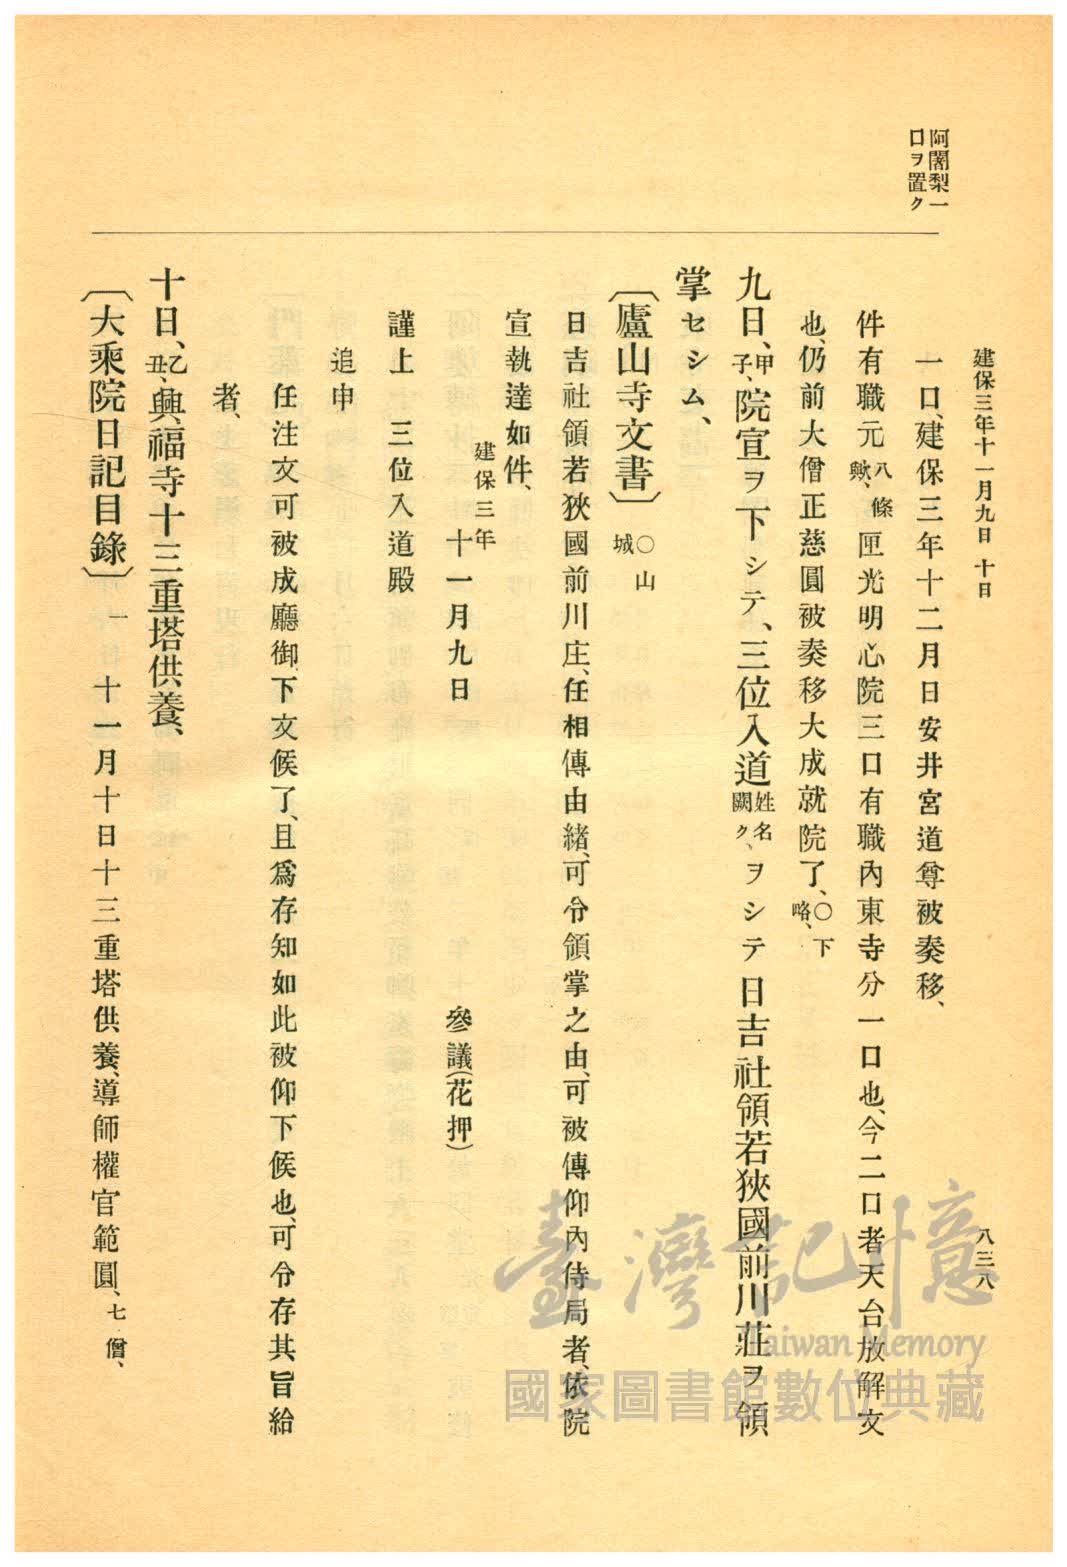 建保三年十一月九日　十日
八三八
阿闍梨一
口ヲ置ク
一口、建保三年十二月日安井宮道尊被奏移、
件有職元八條歟、匣光明心院三口有職內東寺分一口也、今二口者天台放解文
也、仍前大僧正慈圓被奏移大成就院了、〇下略、
九日、甲子、院宣ヲ下シテ、三位入道姓名闕ク、ヲシテ日吉社領若狹國前川莊ヲ領
掌セシム、
〔廬山寺文書〕〇山城
日吉社領若狹國前川庄、任相傳由緖、可令領掌之由、可被傳仰內侍局者、依院
宣執達如件、
建保三年
十一月九日　參議(花押)
謹上　三位入道殿
追申
任注文可被成廳御下文候了、且爲存知如此被仰下候也、可令存其旨給
者、
十日、乙丑、興福寺十三重塔供養、
〔大乘院日記目錄〕一　十一月十日十三重塔供養、導師權官範圓、七僧、
臺灣記憶
Taiwan Memory
國家圖書館數位典藏